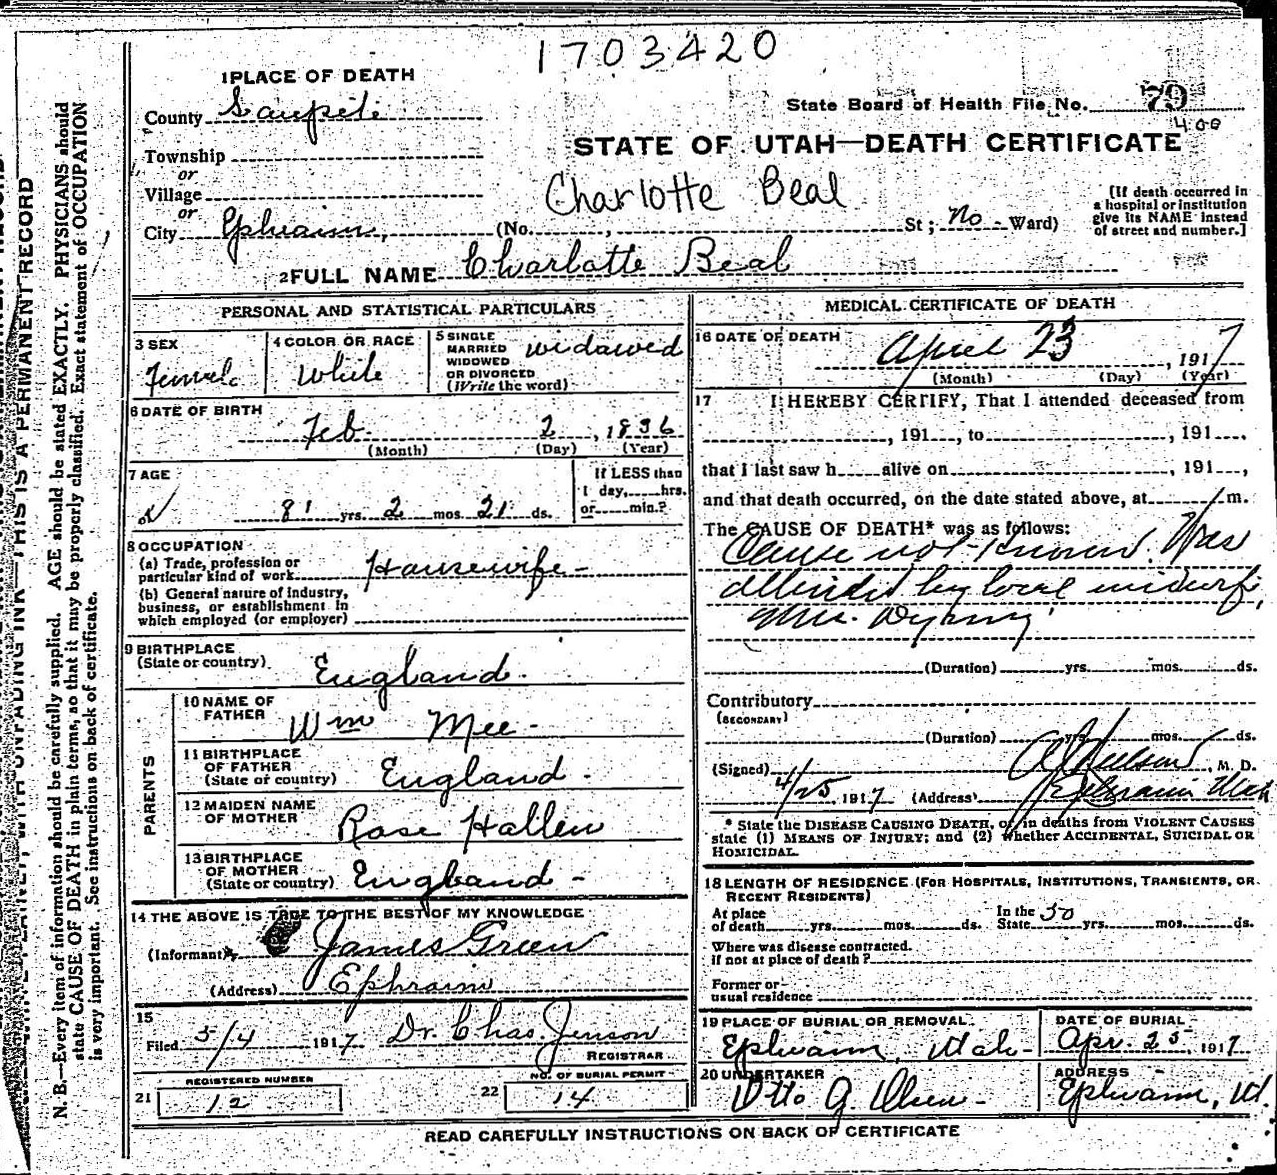 1703420
1 PLACE OF DEATH
County Sanpete
State Board of Health File No. 79
400
STATE OF UTAH—DEATH CERTIFICATE
Township
or
Village
Charlotte Beal
or
City Ephraim, (No. , St; No Ward)
(If death occurred in
a hospital or institution
give its NAME instead
of street and number.]
2 FULL NAME Charlotte Beal
PERSONAL AND STATISTICAL PARTICULARS
3 SEX
Female
4 COLOR OR RACE
White
5 SINGLE
MARRIED
WIDOWED
OR DIVORCED
(Write the word)
widowed
6 DATE OF BIRTH
Feb. 2, 1836
(Month) (Day) (Year)
7 AGE
81 yrs. 2 mos. 21 ds.
If LESS than
1 day, hrs.
or min.?
8 OCCUPATION
(a) Trade, profession or
particular kind of work Housewife
(b) General nature of Industry,
business, or establishment in
which employed (or employer)
9 BIRTHPLACE
(State or country) England.
PARENTS
10 NAME OF
FATHER Wm Mee
11 BIRTHPLACE
OF FATHER
(State of country) England.
12 MAIDEN NAME
OF MOTHER Rose Hallen
13 BIRTHPLACE
OF MOTHER
(State or country) England
14 THE ABOVE IS TRUE TO THE BEST OF MY KNOWLEDGE
(Informant) James Green
(Address) Ephraim
15
Filed 5/4 1917 Dr. Chas Jenson
REGISTRAR
REGISTERED NUMBER
21 12
NO. OF BURIAL PERMIT
22 14
MEDICAL CERTIFICATE OF DEATH
16 DATE OF DEATH
April 23, 1917
(Month) (Day) (Year)
17 I HEREBY CERTIFY, That I attended deceased from
, 191 , to , 191 ,
that I last saw h alive on , 191 ,
and that death occurred, on the date stated above, at m.
The CAUSE OF DEATH* was as follows:
Cause not known. Was
attended by local midwife,
Mrs.
(Duration) yrs. mos. ds.
Contributory
(SECONDARY)
(Duration) yrs. mos. ds.
(Signed) , M. D.
4/25 1917 (Address) Ephraim Utah
* State the DISEASE CAUSING DEATH, or, in deaths from VIOLENT CAUSES
state (1) MEANS OF INJURY; and (2) whether ACCIDENTAL, SUICIDAL OR
HOMICIDAL.
18 LENGTH OF RESIDENCE (FOR HOSPITALS, INSTITUTIONS, TRANSIENTS, OR
RECENT RESIDENTS)
At place
of death yrs. mos. ds.
In the
State 50 yrs. mos. ds.
Where was disease contracted.
if not at place of death?
Former or
usual residence
19 PLACE OF BURIAL OR REMOVAL
Ephraim, Utah
DATE OF BURIAL
Apr. 25, 1917
20 UNDERTAKER
Otto G. Olsen
ADDRESS
Ephraim, Ut.
READ CAREFULLY INSTRUCTIONS ON BACK OF CERTIFICATE
WITH UNFADING INK—THIS IS A PERMANENT RECORD
N. B.—Every item of information should be carefully supplied. AGE should be stated EXACTLY. PHYSICIANS should
state CAUSE OF DEATH in plain terms, so that it may be properly classified. Exact statement of OCCUPATION
is very important. See instructions on back of certificate.